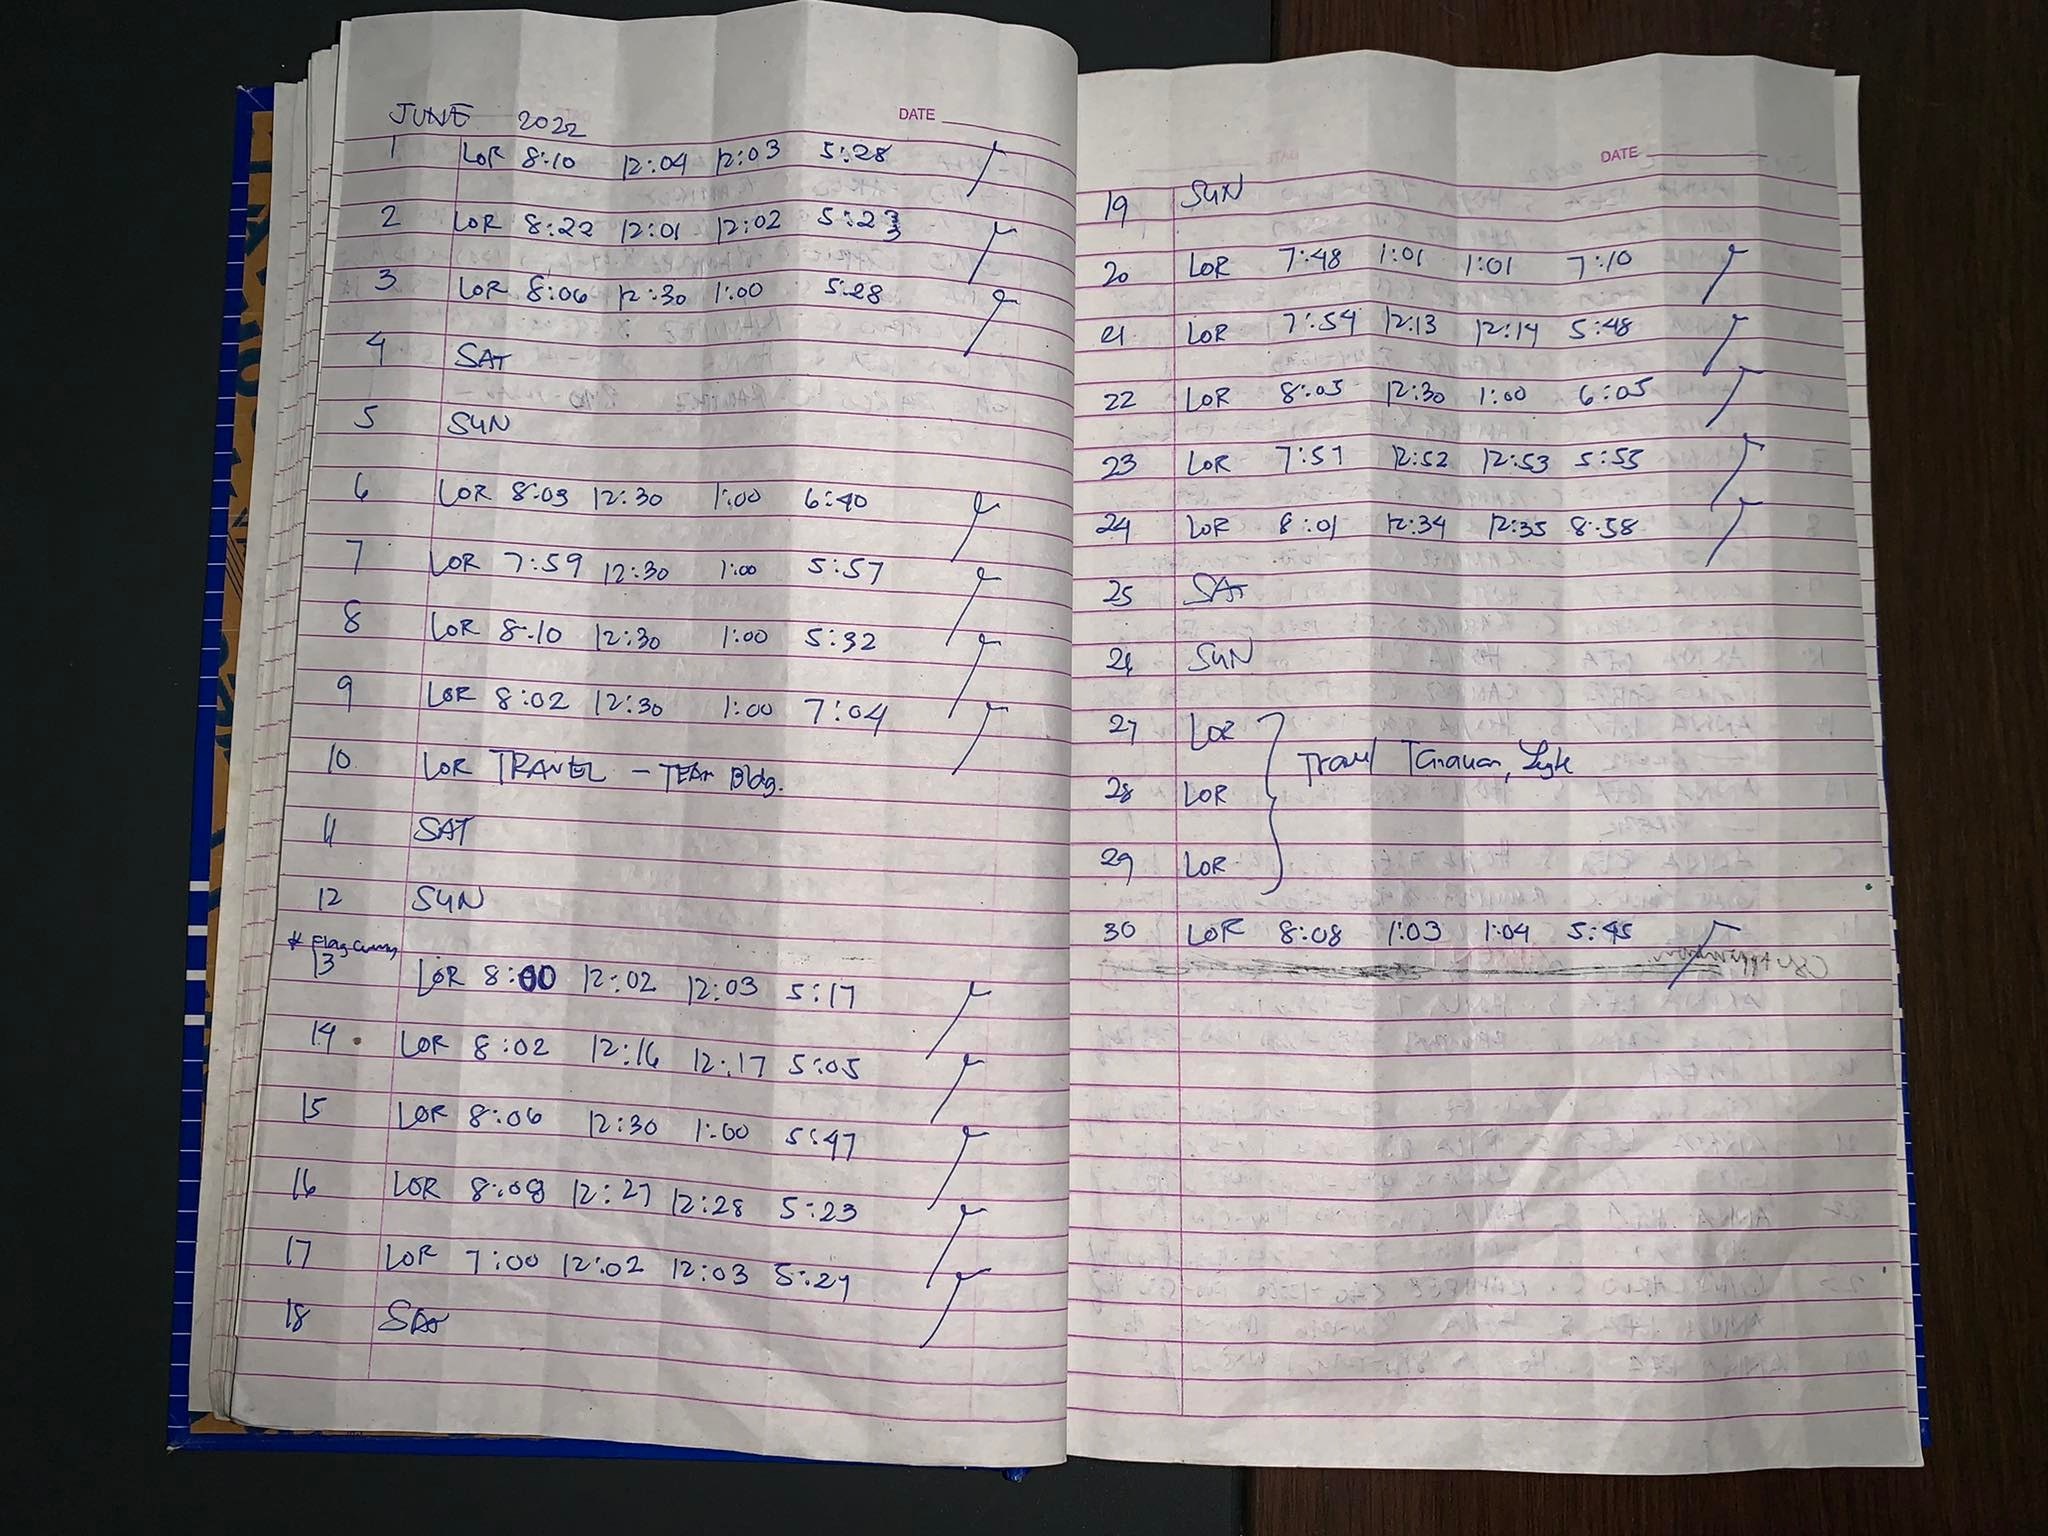 JUNE 2022
DATE
1 LOR 8:10 12:04 12:03 5:28
2 LOR 8:22 12:01 12:02 5:23
3 LOR 8:06 12:30 1:00 5:28
4 SAT
5 SUN
6 LOR 8:03 12:30 1:00 6:40
7 LOR 7:59 12:30 1:00 5:57
8 LOR 8:10 12:30 1:00 5:32
9 LOR 8:02 12:30 1:00 7:04
10 LOR TRAVEL - TEAM Bldg.
11 SAT
12 SUN
* Flag
13 LOR 8:00 12:02 12:03 5:17
14 LOR 8:02 12:16 12:17 5:05
15 LOR 8:06 12:30 1:00 5:47
16 LOR 8:08 12:27 12:28 5:23
17 LOR 7:00 12:02 12:03 5:24
18 SAT
DATE
19 SUN
20 LOR 7:48 1:01 1:01 7:10
21 LOR 7:54 12:13 12:14 5:48
22 LOR 8:05 12:30 1:00 6:05
23 LOR 7:51 12:52 12:53 5:55
24 LOR 8:01 12:34 12:35 8:58
25 SAT
26 SUN
27 LOR
Travel Tanauan, Leyte
28 LOR
29 LOR
30 LOR 8:08 1:03 1:04 5:45